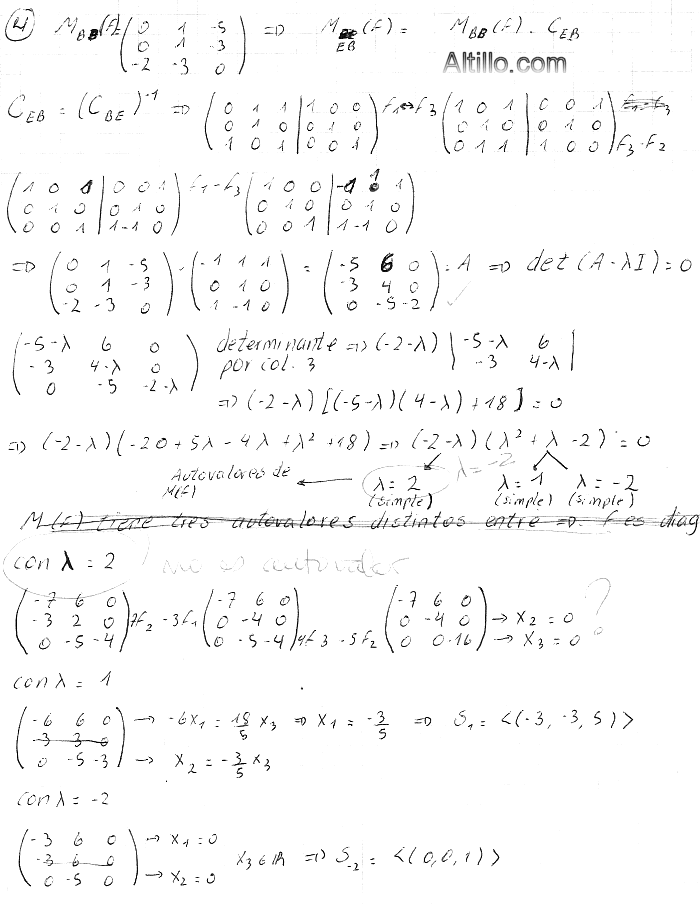 4) M_BB(f) = ( 0 1 -5 / 0 1 -3 / -2 -3 0 ) ⇒ M_EB(f) = M_BB(f) · C_EB
Altillo.com
C_EB = (C_BE)^-1 ⇒ ( 0 1 1 | 1 0 0 / 0 1 0 | 0 1 0 / 1 0 1 | 0 0 1 ) F1↔F3 ( 1 0 1 | 0 0 1 / 0 1 0 | 0 1 0 / 0 1 1 | 1 0 0 ) F3-F2
( 1 0 1 | 0 0 1 / 0 1 0 | 0 1 0 / 0 0 1 | 1 -1 0 ) F1-F3 ( 1 0 0 | -1 1 1 / 0 1 0 | 0 1 0 / 0 0 1 | 1 -1 0 )
⇒ ( 0 1 -5 / 0 1 -3 / -2 -3 0 ) · ( -1 1 1 / 0 1 0 / 1 -1 0 ) = ( -5 6 0 / -3 4 0 / 0 -5 -2 ) = A ⇒ det(A-λI) = 0
( -5-λ 6 0 / -3 4-λ 0 / 0 -5 -2-λ ) determinante por col. 3 ⇒ (-2-λ) | -5-λ 6 / -3 4-λ |
⇒ (-2-λ) [(-5-λ)(4-λ) + 18] = 0
⇒ (-2-λ)(-20+5λ-4λ+λ²+18) ⇒ (-2-λ)(λ²+λ-2) = 0
λ=-2
Autovalores de M(f) ← λ=2 (simple) λ=1 (simple) λ=-2 (simple)
M(f) tiene tres autovalores distintos entre ⇒ f es diag
con λ = 2 no es autovalor
( -7 6 0 / -3 2 0 / 0 -5 -4 ) 7F2-3F1 ( -7 6 0 / 0 -4 0 / 0 -5 -4 ) 4F3-5F2 ( -7 6 0 / 0 -4 0 / 0 0 -16 ) → X2=0 → X3=0 ?
con λ = 1
( -6 6 0 / -3 3 0 / 0 -5 -3 ) → -6X1 = 18/5 X3 ⇒ X1 = -3/5 ⇒ S1 = <(-3, -3, 5)>
→ X2 = -3/5 X3
con λ = -2
( -3 6 0 / -3 6 0 / 0 -5 0 ) → X1=0 → X2=0 X3 ∈ IR ⇒ S-2 = <(0,0,1)>